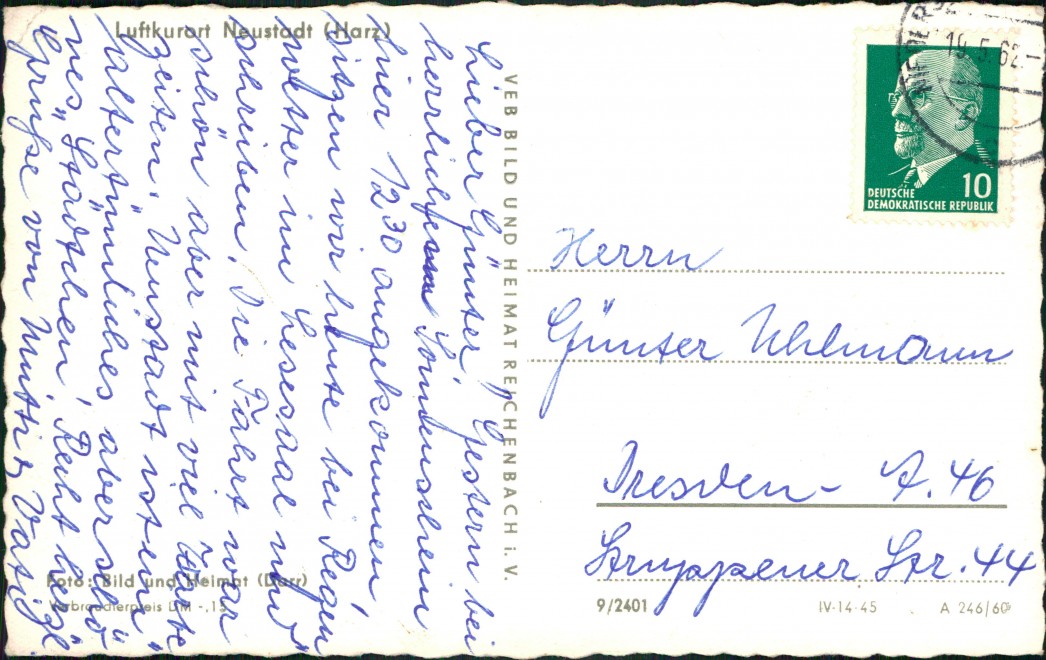 Luftkurort Neustadt (Harz)
Lieber Günter! Gestern bei
herrlichem Sonnenschein
hier 12³⁰ angekommen,
sitzen wir heute bei Regen
wetter im Lesesaal und
schreiben. Die Fahrt war
schön aber mit viel Warte
zeiten. Neustadt ist ein
altertümliches aber schö
nes Städtchen. Recht herzl.
Grüße von Mutti & Vati
Foto: Bild und Heimat (Darr)
Verbraucherpreis DM -,15
VEB BILD UND HEIMAT REICHENBACH i. V.
19.5.62
DEUTSCHE
DEMOKRATISCHE REPUBLIK
10
Herrn
Günter Uhlmann
Dresden - A. 46
Struppener Str. 44
9/2401 IV-14-45 A 246/60